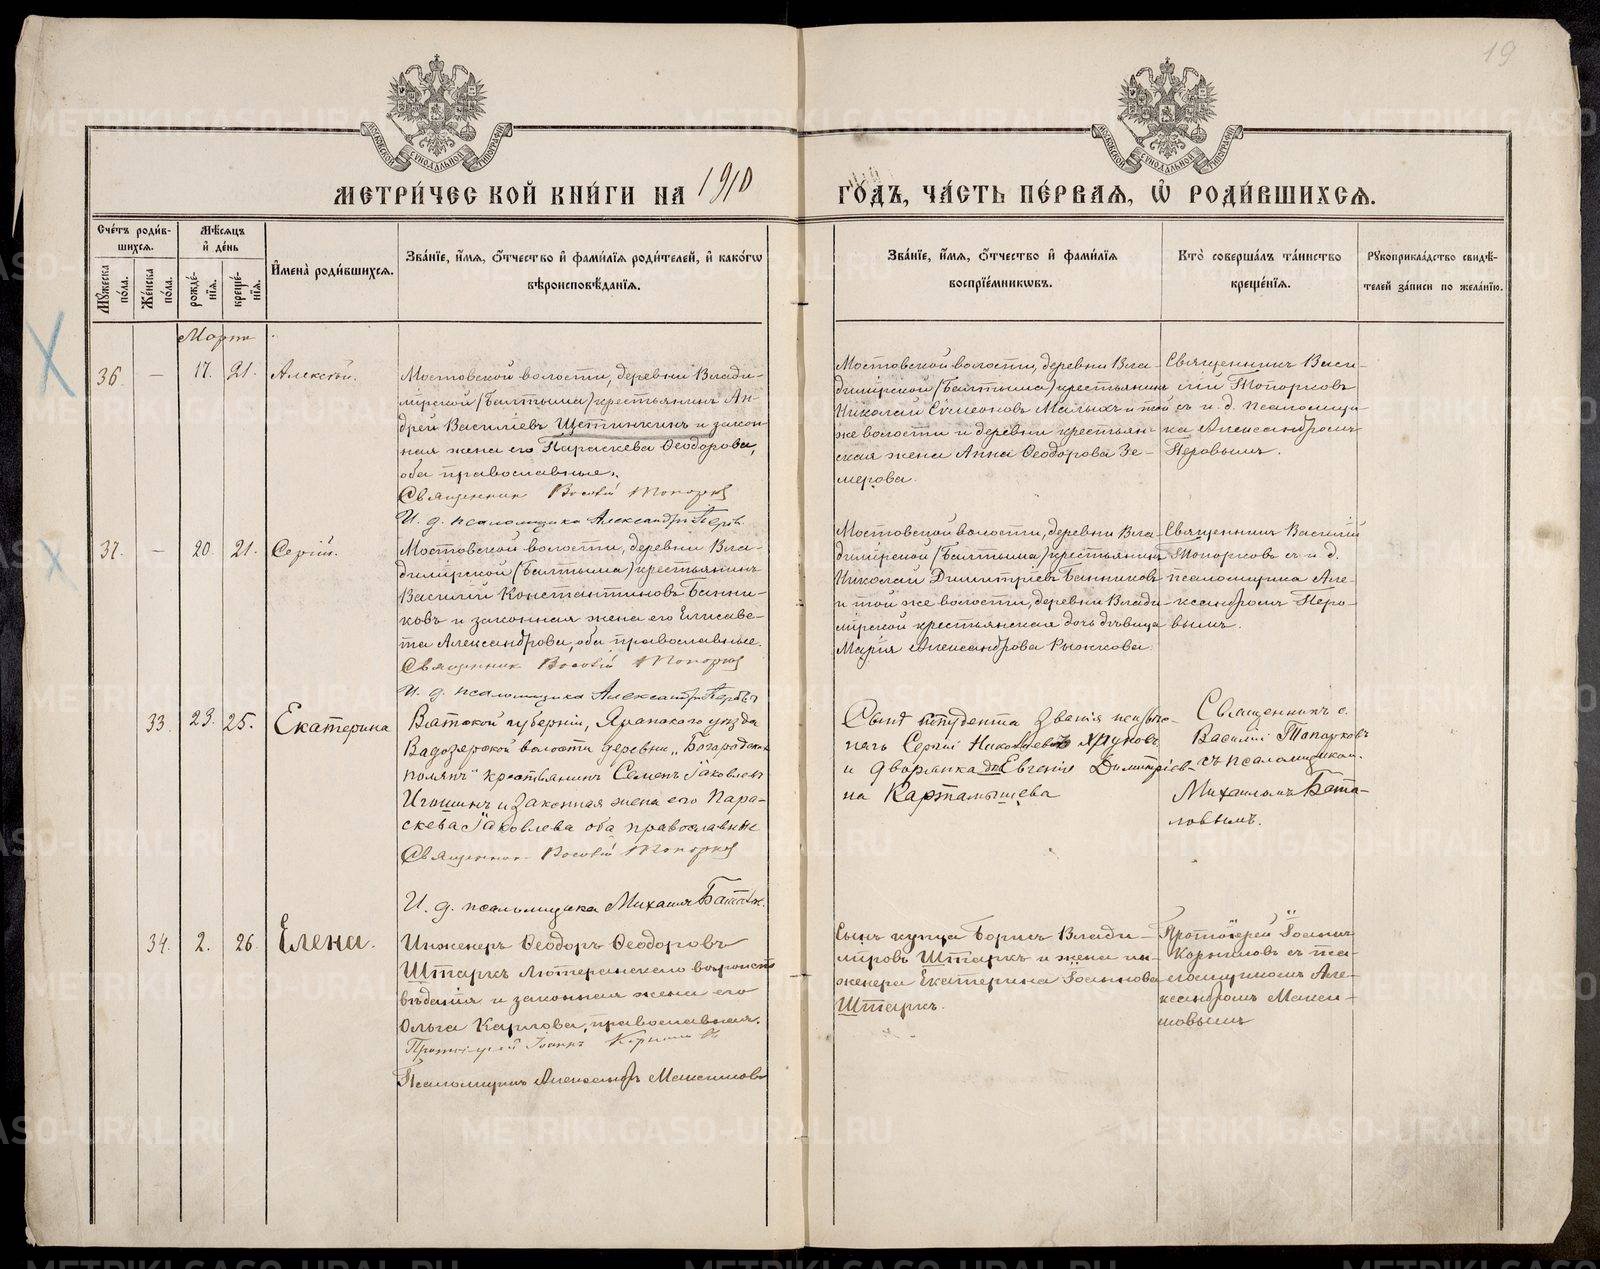 19
МОСКОВСКОЙ СѴНОДАЛЬНОЙ ТИПОГРАФІИ
МОСКОВСКОЙ СѴНОДАЛЬНОЙ ТИПОГРАФІИ
МЕТРИ́ЧЕСКОЙ КНИ́ГИ НА 1910 ГОДЪ, ЧА́СТЬ ПЕ́РВАѦ, Ѡ҆ РОДИ́ВШИХСѦ.
Сче́тъ роди́в-
шихсѧ.
Мꙋ́жеска по́ла.
Же́нска по́ла.
Мѣ́сѧцъ
и҆ де́нь
рожде́-
нїѧ.
креще́-
нїѧ.
И҆мена̀ роди́вшихсѧ.
Зва́нїе, и҆́мѧ, ѻ҆́тчество и҆ фами́лїѧ роди́телей, и҆ како́гѡ
вѣроисповѣ́данїѧ.
Зва́нїе, и҆́мѧ, ѻ҆́тчество и҆ фами́лїѧ
воспрїе́мникѡвъ.
Кто̀ соверша́лъ та́инство
креще́нїѧ.
Рꙋкоприкла́дство свидѣ́-
телей за́писи по жела́нїю.
Мартъ
36. — 17. 21. Алексѣй.
Мостовской волости, деревни Влади-
мірской (Балтыма) крестьянинъ Ан-
дрей Василіевъ Щетинкинъ и закон-
ная жена его Параскева Ѳеодорова,
оба православные.
Священник Василій Топорков
И. д. псаломщика Александръ Перов
Мостовской волости, деревни Вла-
димірской (Балтыма) крестьянинъ
Николай Сѵмеоновъ Малыхъ и той
же волости и деревни крестьян-
ская жена Анна Ѳеодорова Зе-
мерова.
Священникъ Васи-
лій Топорковъ
съ и. д. псаломщи-
ка Александромъ
Перовымъ.
37. — 20. 21. Сергій.
Мостовской волости, деревни Вла-
димірской (Балтыма) крестьянинъ
Василій Константиновъ Банни-
ковъ и законная жена его Елисаве-
та Александрова, оба православные.
Священник Василій Топорков
И. д. псаломщика Александръ Перовъ
Мостовской волости, деревни Вла-
димірской (Балтыма) крестьянинъ
Николай Димитріевъ Банниковъ
и той же волости, деревни Влади-
мірской крестьянская дочь дѣвица
Марія Александрова Рычкова
Священникъ Василій
Топорковъ съ и. д.
псаломщика Але-
ксандромъ Перо-
вымъ.
33. 23. 25. Екатерина
Вятской губерніи, Яранскаго уѣзда
волости деревни
крестьянинъ Семенъ Іаковлевъ
Игошинъ и законная жена его Пара-
скева Іаковлева оба православные
Священник Василій Топорков
И. д. псаломщика Михаилъ Баталов.
Сергій Николаевъ
и дворянка Евгенія Димитріев-
на Картамышева
Священникъ о.
Василій Топорковъ
съ псаломщиком.
Михаиломъ Бата-
ловымъ.
34. 2. 26. Елена.
Инженеръ Ѳеодоръ Ѳеодоровъ
Штаркъ лютеранскаго вѣроиспо-
вѣданія и законная жена его
Ольга Карлова, православная.
Протоіерей Іоаннъ Корниловъ
Псаломщикъ Александръ Максимовъ
Сынъ купца Борисъ Влади-
міровъ Штаркъ и жена ин-
женера Екатерина Іоаннова
Штаркъ.
Протоіерей Іоаннъ
Корниловъ съ пса-
ломщикомъ Але-
ксандромъ Макси-
мовымъ